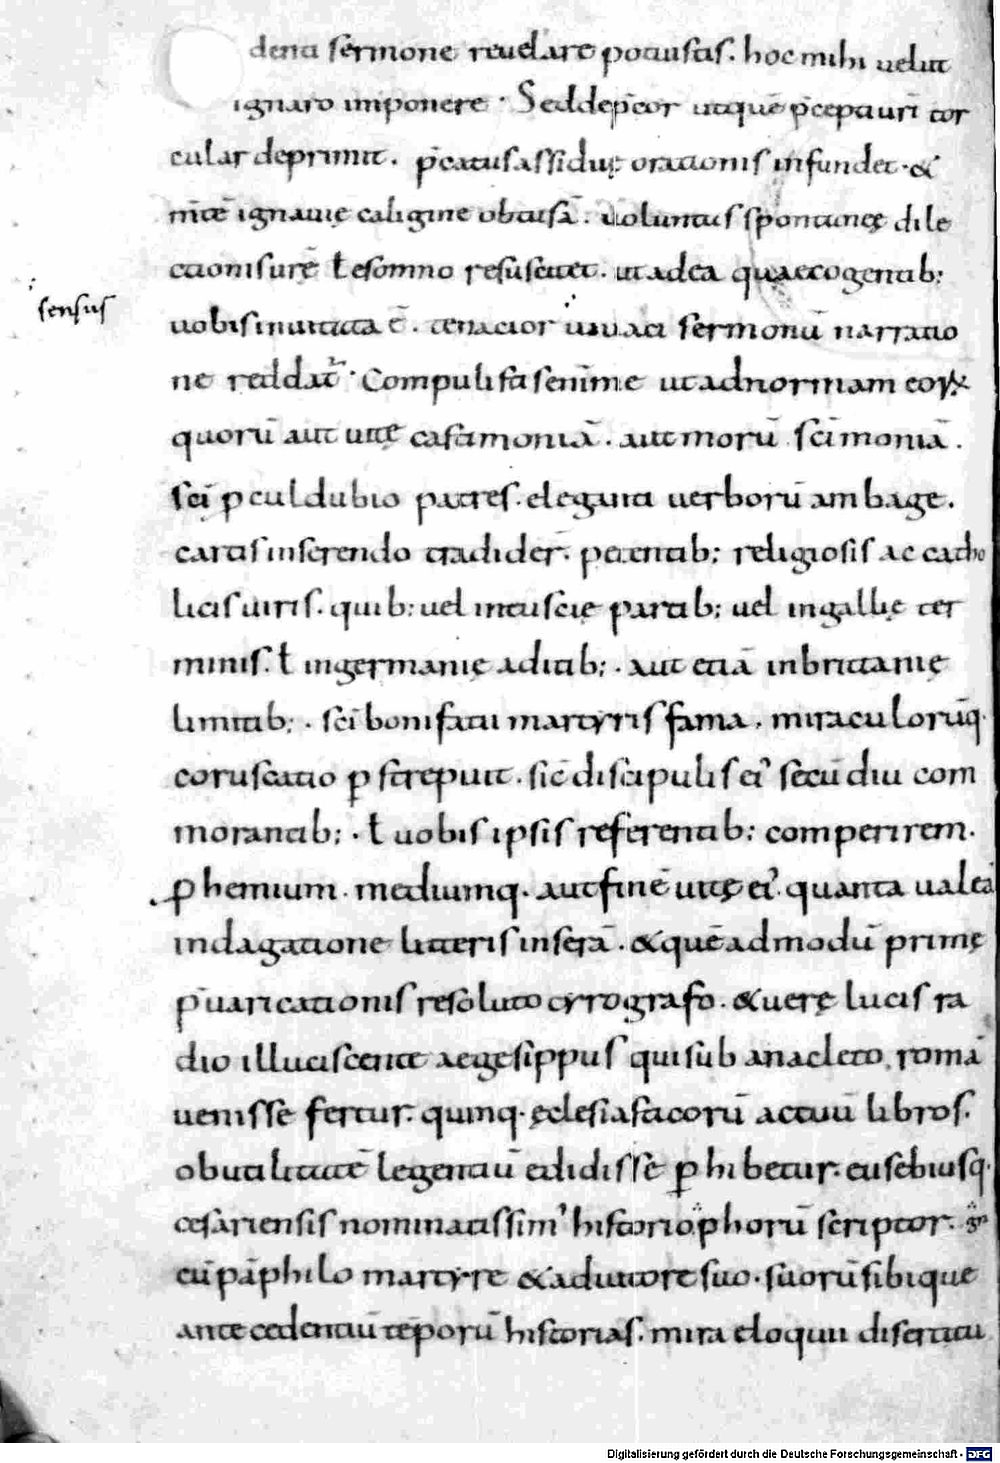 dena sermone reuelare potuistis. hoc mihi uelut
ignaro imponere · Sed dep̄cor utque p̄cepa ur̄i tor
cular deprimit. p̄catus assiduę orationis infundet · &
m̄tē ignauię caligine obtusā. uoluntas spontanęę dile
ctionis urę̄ ł e somno resuscitet. ut ad ea quae cogentib;
sensus
uobis inuitata ē. tenacior uiuaci sermonū narratio
ne reddat̄ · Compulistis enim me ut ad normam eoꝝ
quorū aut uitę castimoniā. aut morū sc̄imoniā.
sc̄i ꝑcul dubio patres. eleganti uerborū ambage.
cartis inserendo tradider̄. petentib; religiosis ac catho
licis uiris. quib; uel in tuscię partib; uel in gallię ter
minis. ł in germanię aditib; · aut etiā in brittanię
limitib; · sc̄i bonifatii martyris fama. miraculorūq·
coruscatio ꝑstrepuit. sic̄ discipulis ei' secū diu com
morantib; · ł uobis ipsis referentib; comperirem.
ꝓhemium. mediumq. aut finē uitę ei'. quanta ualeā
indagatione litteris inserā. & quēadmodū primę
p̄uaricationis resoluto cyrografo. & uerę lucis ra
dio illuciscente aegesippus qui sub anacleto romā
uenisse fertur. quinq· ęclesiasticorū actuū libros.
ob utilitatē legentiū edidisse ꝑhibetur. eusebiusq·
cesariensis nominatissim' historiophorū scriptor.
cū pāphilo martyre & adiutore suo · suorū sibique
antecedentiū tēporū historias. mira eloquii disertitu
Digitalisierung gefördert durch die Deutsche Forschungsgemeinschaft - DFG